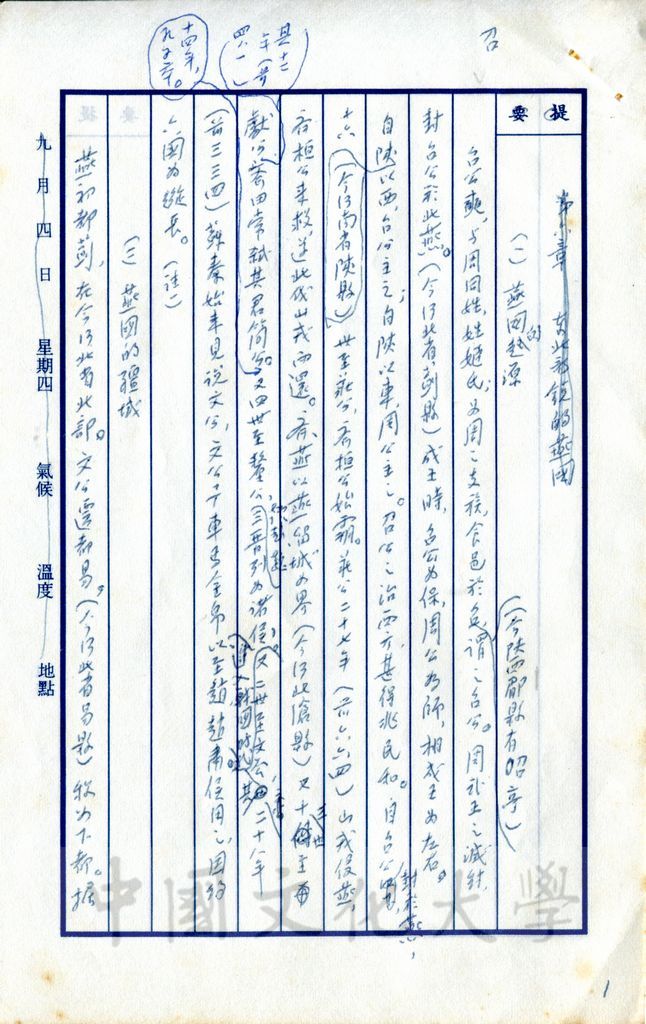 召
提 要
第六章 東北新興的燕國
(一) 燕國的起源
(今陝西郿縣有召亭)
召公奭,与周同姓,姓姬氏,为周之支族,食邑於召,谓之召公。周武王之滅紂,
封召公於北燕。(今河北省薊縣)成王時,召公为保,周公为師,相成王为左右。
自陝以西,召公主之;自陝以東,周公主之。召公之治西方,甚得兆民和。自召公
封於燕,
十六(今河南省陝縣)世至莊公,齊桓公始霸。莊公二十七年(前六六四)山戎侵燕,
齊桓公來救,遂北伐山戎而還。齊、燕以燕留城为界(今河北滄縣)又十三世至
獻公,齊田常弒其君簡公。又四世至釐公,三晋列为诸侯。又二世至文公,二十八年
其十二年(前四八一)
十四年,
進入戰國時代,
(前三三四)蘇秦始来見說文公,文公予車馬金帛以至趙,趙肅侯用之,因约
六國为縱長。(註一)
(二) 燕國的疆域
燕初都薊,在今河北省北部。文公遷都易,(今河北省易縣)称为下都。据
九月四日 星期四 氣候 溫度 地點
中國文化大學
1